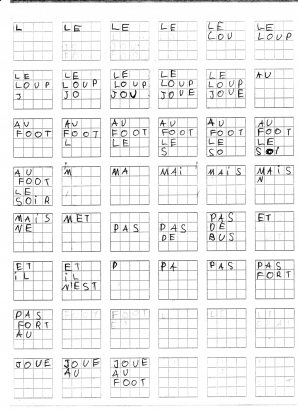 L
LE
LE
LE
LE
COU
LE
LOUP
LE
LOUP
J
LE
LOUP
JO
LE
LOUP
JOU
LE
LOUP
JOUE
LE
LOUP
JOUE
AU
AU
FOOT
AU
FOOT
L
AU
FOOT
LE
AU
FOOT
LE
S
AU
FOOT
LE
SO
AU
FOOT
LE
SOI
AU
FOOT
LE
SOIR
M
MA
MAi
MAiS
MAiS
N
MAiS
NE
MET
PAS
PAS
DE
PAS
DE
BUS
ET
ET
iL
ET
iL
N'EST
P
PA
PAS
PAS
FORT
PAS
FORT
AU
JOUE
JOUE
AU
JOUE
AU
FOOT